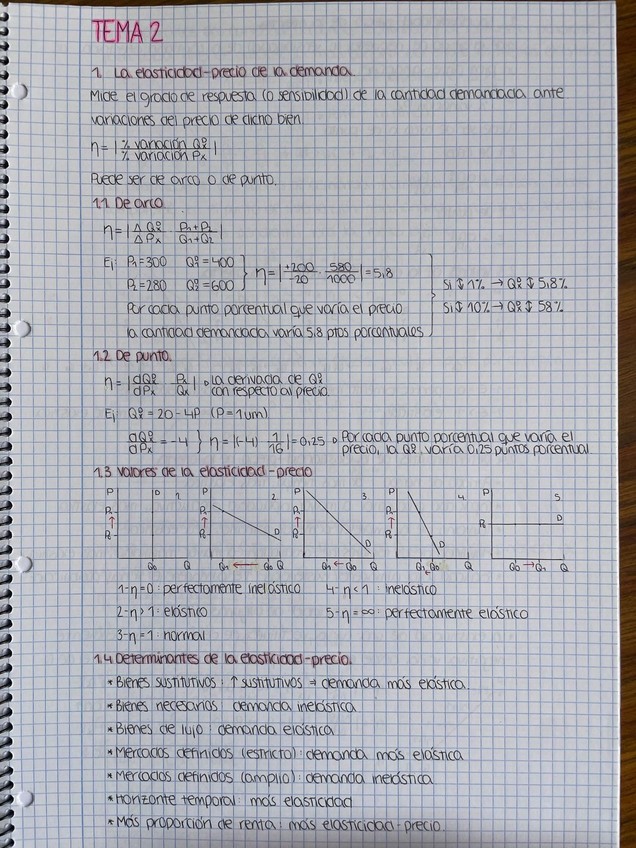 TEMA 2
1. La elasticidad-precio de la demanda
Mide el grado de respuesta (o sensibilidad) de la cantidad demandada ante
variaciones del precio de dicho bien.
η = | % variación Qº / % variación Px |
Puede ser de arco o de punto.
1.1 De arco
η = | ΔQº / ΔPx · P1+P2 / Q1+Q2 |
Ej P1=300 Qº=400 } η = | +200 / -20 · 580 / 1000 | = 5,8
P2=280 Qº=600
Si ↕ 1% → Qº ↕ 5,8%
Si ↕ 10% → Qº ↕ 58%
Por cada punto porcentual que varía el precio
la cantidad demandada varía 5,8 ptos porcentuales
1.2 De punto.
η = | dQº / dPx · Px / Qx | La derivada de Qº
con respecto al precio.
Ej Qº = 20-4P (P=1um)
dQº / dPx = -4 } η = |(-4) · 1/16| = 0,25 Por cada punto porcentual que varía el
precio, la Qº varía 0,25 puntos porcentual
1.3 Valores de la elasticidad-precio
P D 1 P 2 P 3 P 4 P 5
P1 P1 P1 P1 D
P2 P2 P2 P2 P2
D D D
Q0 Q Q1 ← Q0 Q Q1 ← Q0 Q Q1 ← Q0 Q Q0 → Q1 Q
1-η=0: perfectamente inelástico 4-η<1: inelástico
2-η>1: elástico 5-η=∞: perfectamente elástico
3-η=1: normal
1.4 Determinantes de la elasticidad-precio.
* Bienes sustitutivos: ↑ sustitutivos ⇒ demanda más elástica.
* Bienes necesarios: demanda inelástica
* Bienes de lujo: demanda elástica
* Mercados definidos (estricto): demanda más elástica
* Mercados definidos (amplio): demanda inelástica
* Horizonte temporal: más elasticidad
* Más proporción de renta: más elasticidad-precio.